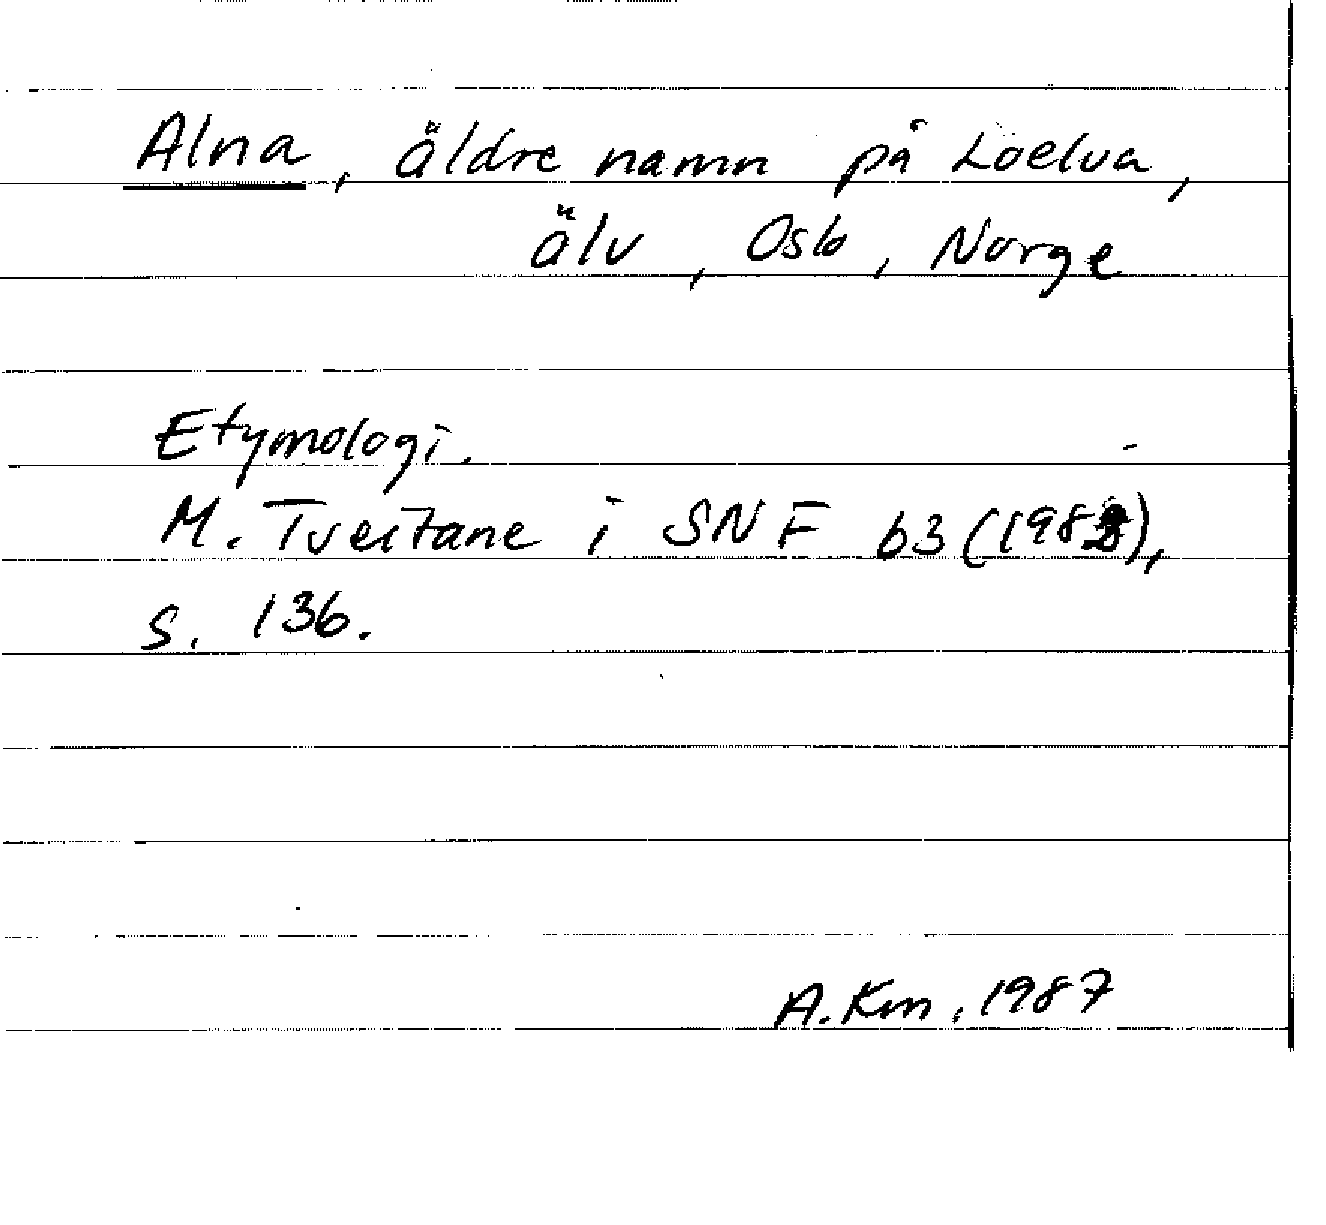 Alna, äldre namn på Loelva,
älv, Oslo, Norge
Etymologi.
M. Tveitane i SNF 63 (1982),
s. 136.
A. Km, 1987